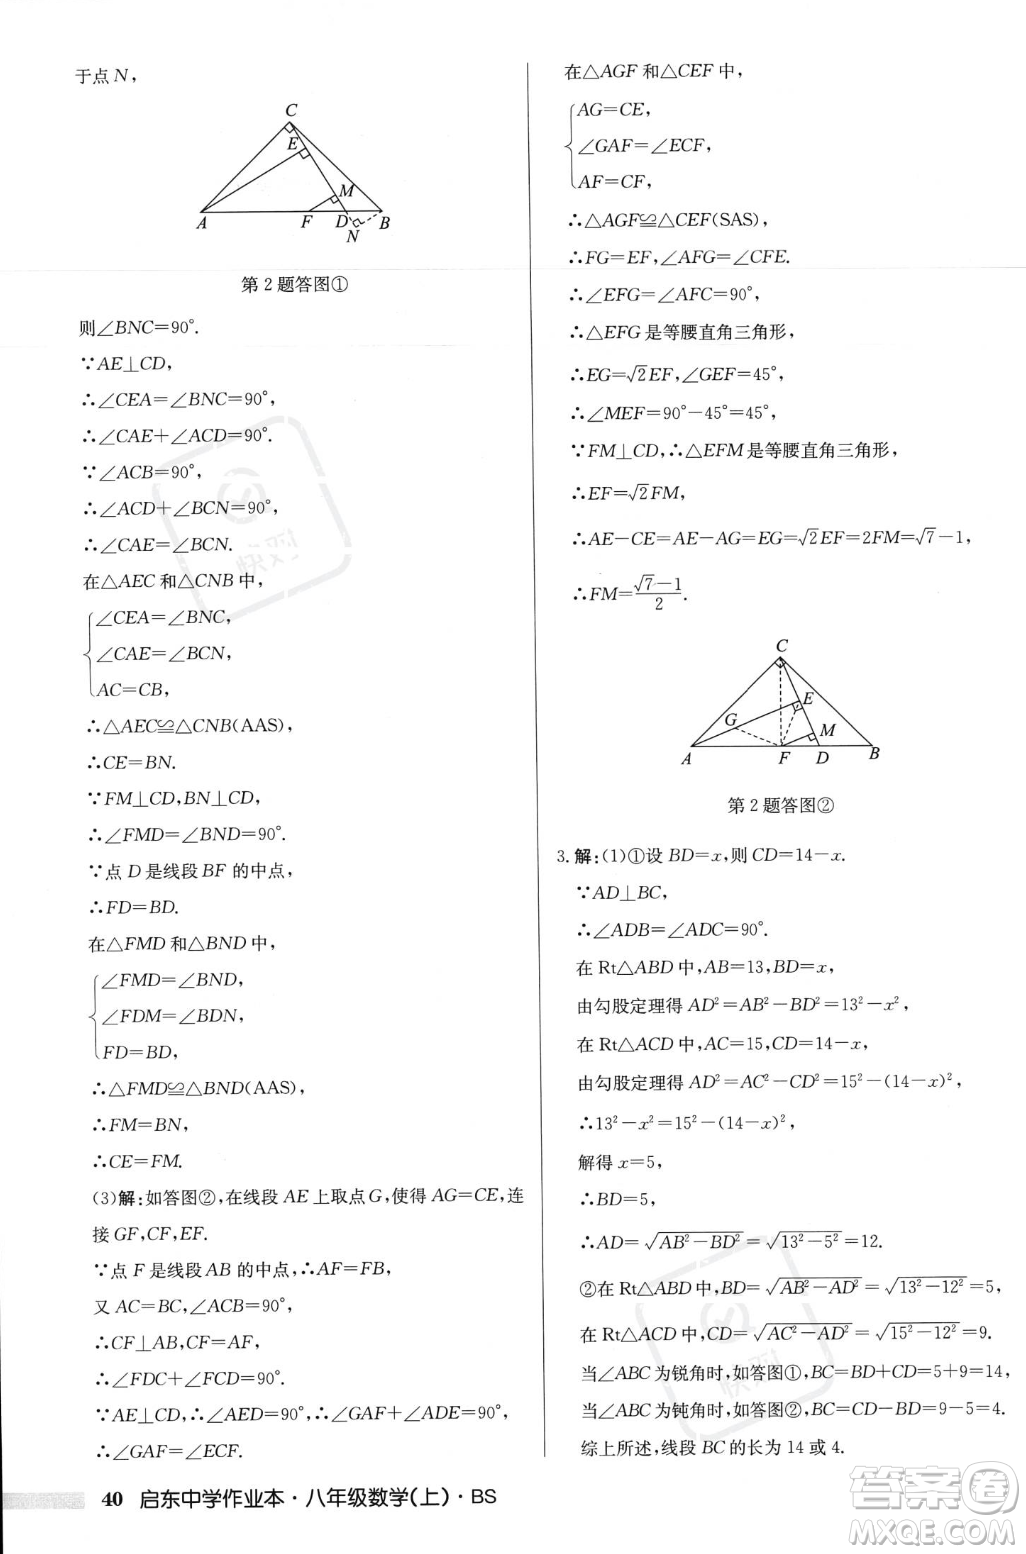 于点 N,
C
E
M
A
F
D
B
N
第 2 题答图①
则∠BNC=90°.
∵AE⊥CD,
∴∠CEA=∠BNC=90°,
∴∠CAE+∠ACD=90°.
∵∠ACB=90°,
∴∠ACD+∠BCN=90°,
∴∠CAE=∠BCN.
在△AEC 和△CNB 中,
∠CEA=∠BNC,
∠CAE=∠BCN,
AC=CB,
∴△AEC≌△CNB(AAS),
∴CE=BN.
∵FM⊥CD,BN⊥CD,
∴∠FMD=∠BND=90°.
∵点 D 是线段 BF 的中点,
∴FD=BD.
在△FMD 和△BND 中,
∠FMD=∠BND,
∠FDM=∠BDN,
FD=BD,
∴△FMD≌△BND(AAS),
∴FM=BN,
∴CE=FM.
(3)解:如答图②,在线段 AE 上取点 G,使得 AG=CE,连
接 GF,CF,EF.
∵点 F 是线段 AB 的中点,∴AF=FB,
又 AC=BC,∠ACB=90°,
∴CF⊥AB,CF=AF,
∴∠FDC+∠FCD=90°.
∵AE⊥CD,∴∠AED=90°,∴∠GAF+∠ADE=90°,
∴∠GAF=∠ECF.
在△AGF 和△CEF 中,
AG=CE,
∠GAF=∠ECF,
AF=CF,
∴△AGF≌△CEF(SAS),
∴FG=EF,∠AFG=∠CFE.
∴∠EFG=∠AFC=90°,
∴△EFG 是等腰直角三角形,
∴EG=√2EF,∠GEF=45°,
∴∠MEF=90°-45°=45°,
∵FM⊥CD,∴△EFM 是等腰直角三角形,
∴EF=√2FM,
∴AE-CE=AE-AG=EG=√2EF=2FM=√7-1,
∴FM=(√7-1)/2.
C
E
G
M
A
F
D
B
第 2 题答图②
3. 解:(1)①设 BD=x,则 CD=14-x.
∵AD⊥BC,
∴∠ADB=∠ADC=90°.
在 Rt△ABD 中,AB=13,BD=x,
由勾股定理得 AD²=AB²-BD²=13²-x²,
在 Rt△ACD 中,AC=15,CD=14-x,
由勾股定理得 AD²=AC²-CD²=15²-(14-x)²,
∴13²-x²=15²-(14-x)²,
解得 x=5,
∴BD=5,
∴AD=√(AB²-BD²)=√(13²-5²)=12.
②在 Rt△ABD 中,BD=√(AB²-AD²)=√(13²-12²)=5,
在 Rt△ACD 中,CD=√(AC²-AD²)=√(15²-12²)=9.
当∠ABC 为锐角时,如答图①,BC=BD+CD=5+9=14,
当∠ABC 为钝角时,如答图②,BC=CD-BD=9-5=4.
综上所述,线段 BC 的长为 14 或 4.
40 启东中学作业本·八年级数学(上)·BS
答案圈
MXQE.COM